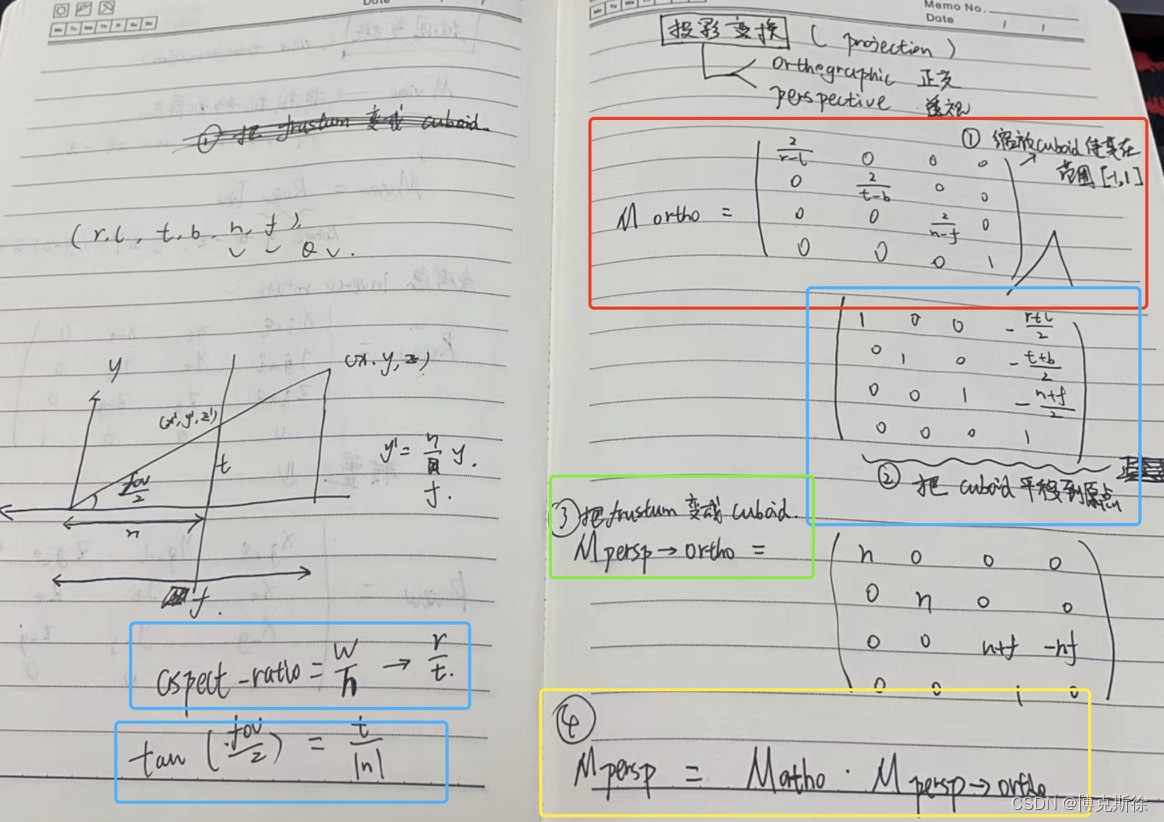 Date
① 把 frustum 变成 cuboid.
(r.l, t.b, n, f),
y
(x. y, z)
(x', y', z')
t
fov/2
n
y' = n/f y.
f.
aspect-ratio = w/h → r/t.
tan (fov/2) = t/|n|
Memo No.
Date
投影变换 ( projection )
orthographic 正交
perspective 透视
① 缩放cuboid 使其在
范围 [-1,1]
M ortho =
2/r-l 0 0 0
0 2/t-b 0 0
0 0 2/n-f 0
0 0 0 1
1 0 0 -r+l/2
0 1 0 -t+b/2
0 0 1 -n+f/2
0 0 0 1
② 把 cuboid 平移到原点
③ 把frustum 变成 cuboid.
M persp→ortho =
n 0 0 0
0 n 0 0
0 0 n+f -nf
0 0 1 0
④
M persp = M ortho · M persp→ortho
CSDN @博克斯徐